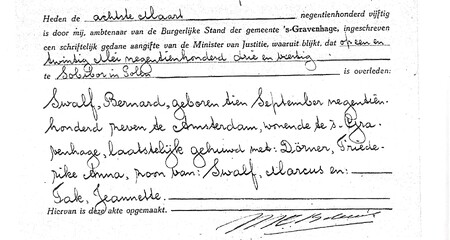 Heden de achtste Maart negentienhonderd vijftig
is door mij, ambtenaar van de Burgerlijke Stand der gemeente 's-Gravenhage, ingeschreven
een schriftelijk gedane aangifte van de Minister van Justitie, waaruit blijkt, dat op een en
twintig Mei negentienhonderd drie en veertig
te Sobibor in Polen is overleden:
Swalf, Bernard, geboren tien September negentien-
honderd zeven te Amsterdam, wonende te 's-Gra-
venhage, laatstelijk gehuwd met: Dörner, Friede-
rike Anna, zoon van: Swalf, Marcus en:
Tak, Jeannette.
Hiervan is deze akte opgemaakt.